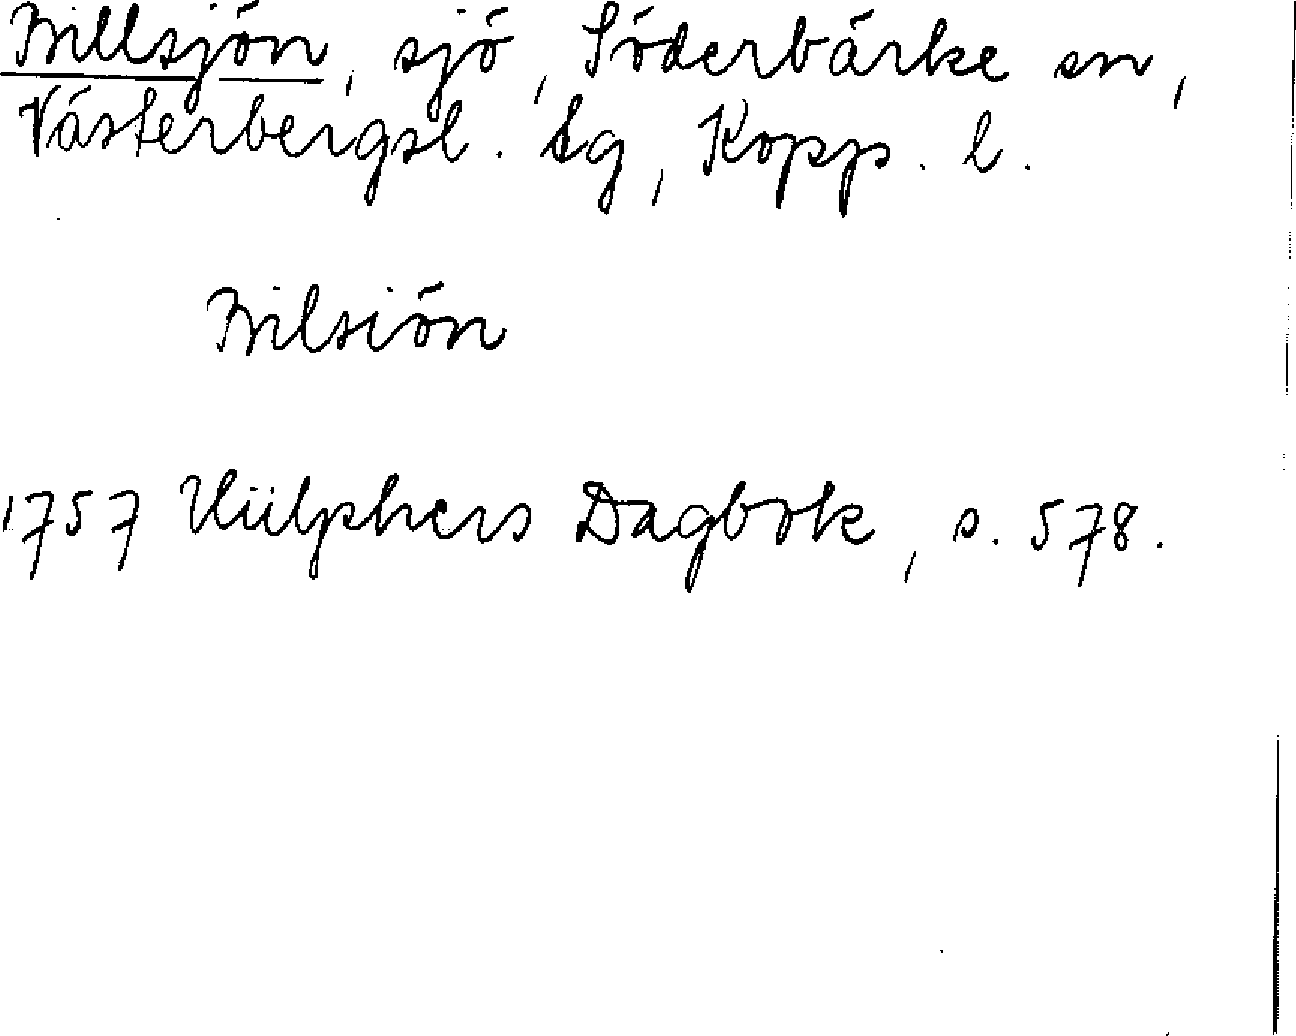 Billsjön, sjö, Söderbärke sn,
Västerbergsl. tg, Kopp. l.
Bilsiön
1757 Hülphers Dagbok, s. 578.